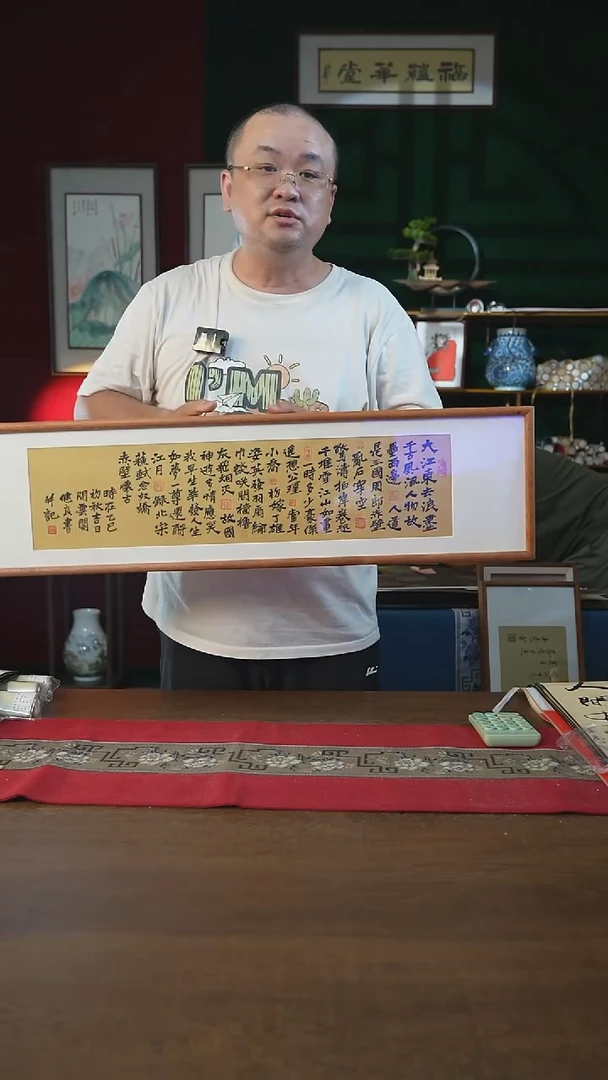 福蘊華堂
大江東去浪盡
千古風流人物故
壘西邊人道
是三國周郎赤壁
亂石穿空
驚濤拍岸卷起
千堆雪江山如畫
一時多少豪傑
遙想公瑾當年
小喬初嫁了雄
姿英發羽扇綸
巾談笑間檣櫓
灰飛煙滅故國
神遊多情應笑
我早生華發人生
如夢一尊還酹
江月錄北宋
蘇軾念奴嬌
赤壁懷古
時在乙巳
初秋吉日
閑雲閣
健良書
并記